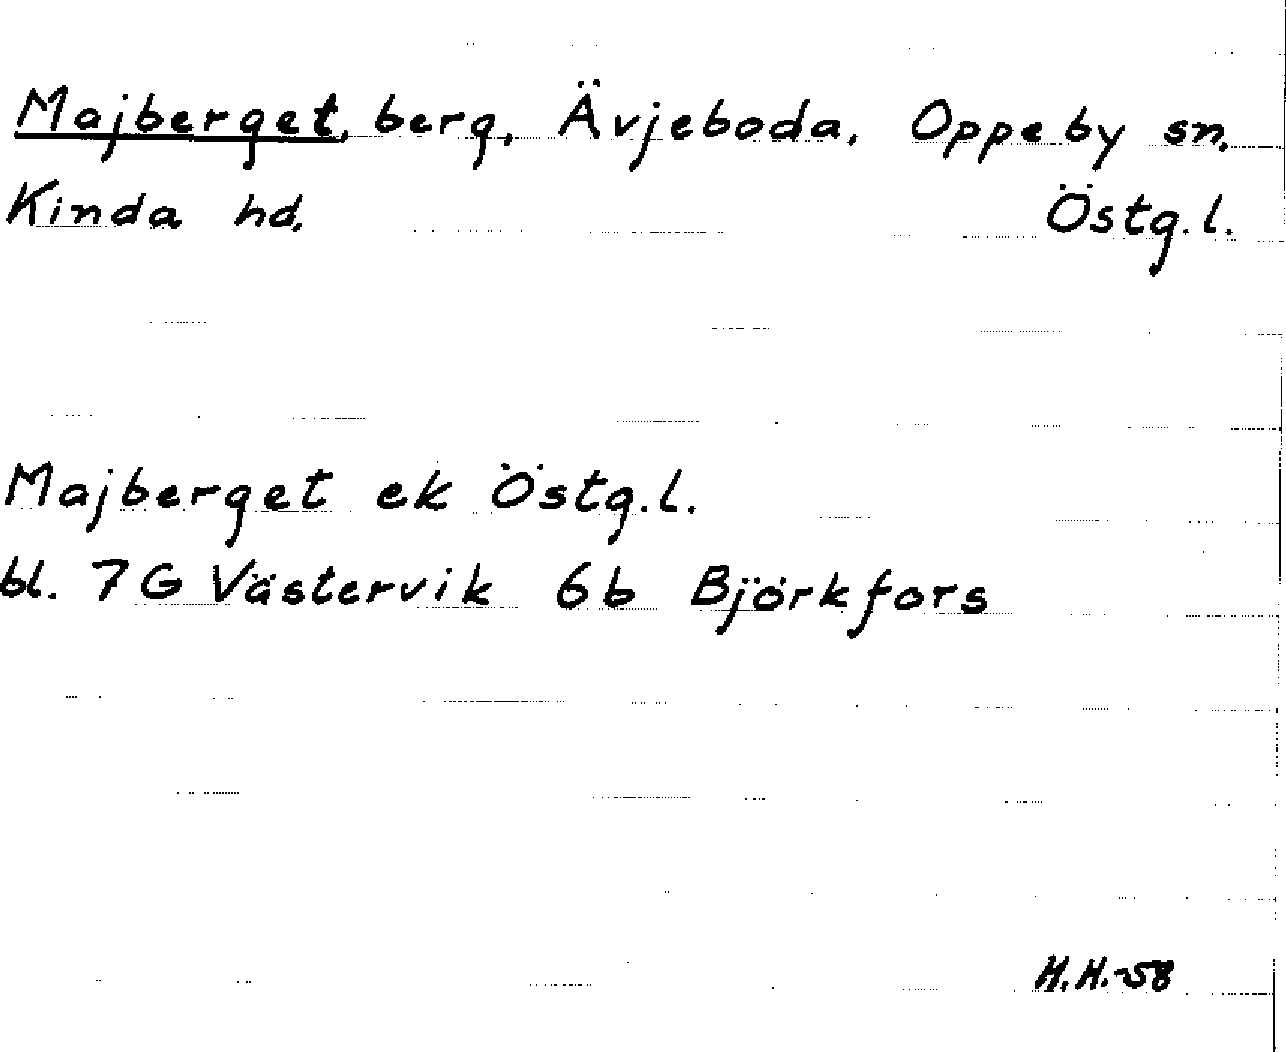 Majberget, berg, Ävjeboda, Oppeby sn,
Kinda hd, Östg.l.
Majberget ek Östg.l.
bl. 7G Västervik 6b Björkfors
H.H.-58